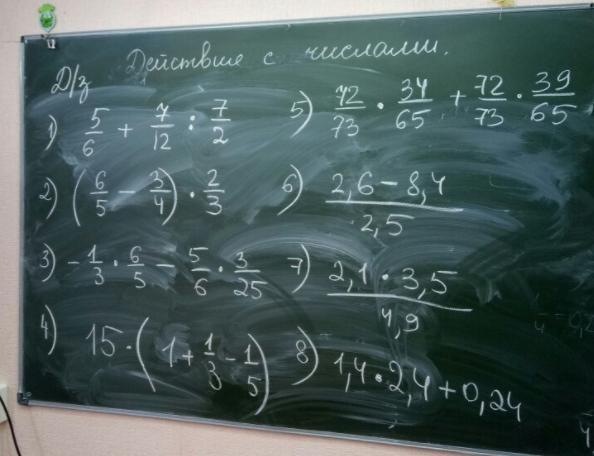 Действие с числами.
Д/з
1) 5/6 + 7/12 : 7/2
2) (6/5 - 3/4) · 2/3
3) -1/3 · 6/5 - 5/6 · 3/25
4) 15 · (1 + 1/3 - 1/5)
5) 72/73 · 34/65 + 72/73 · 39/65
6) (2,6 - 8,4)/2,5
7) (2,1 · 3,5)/4,9
8) 1,4 · 2,4 + 0,24